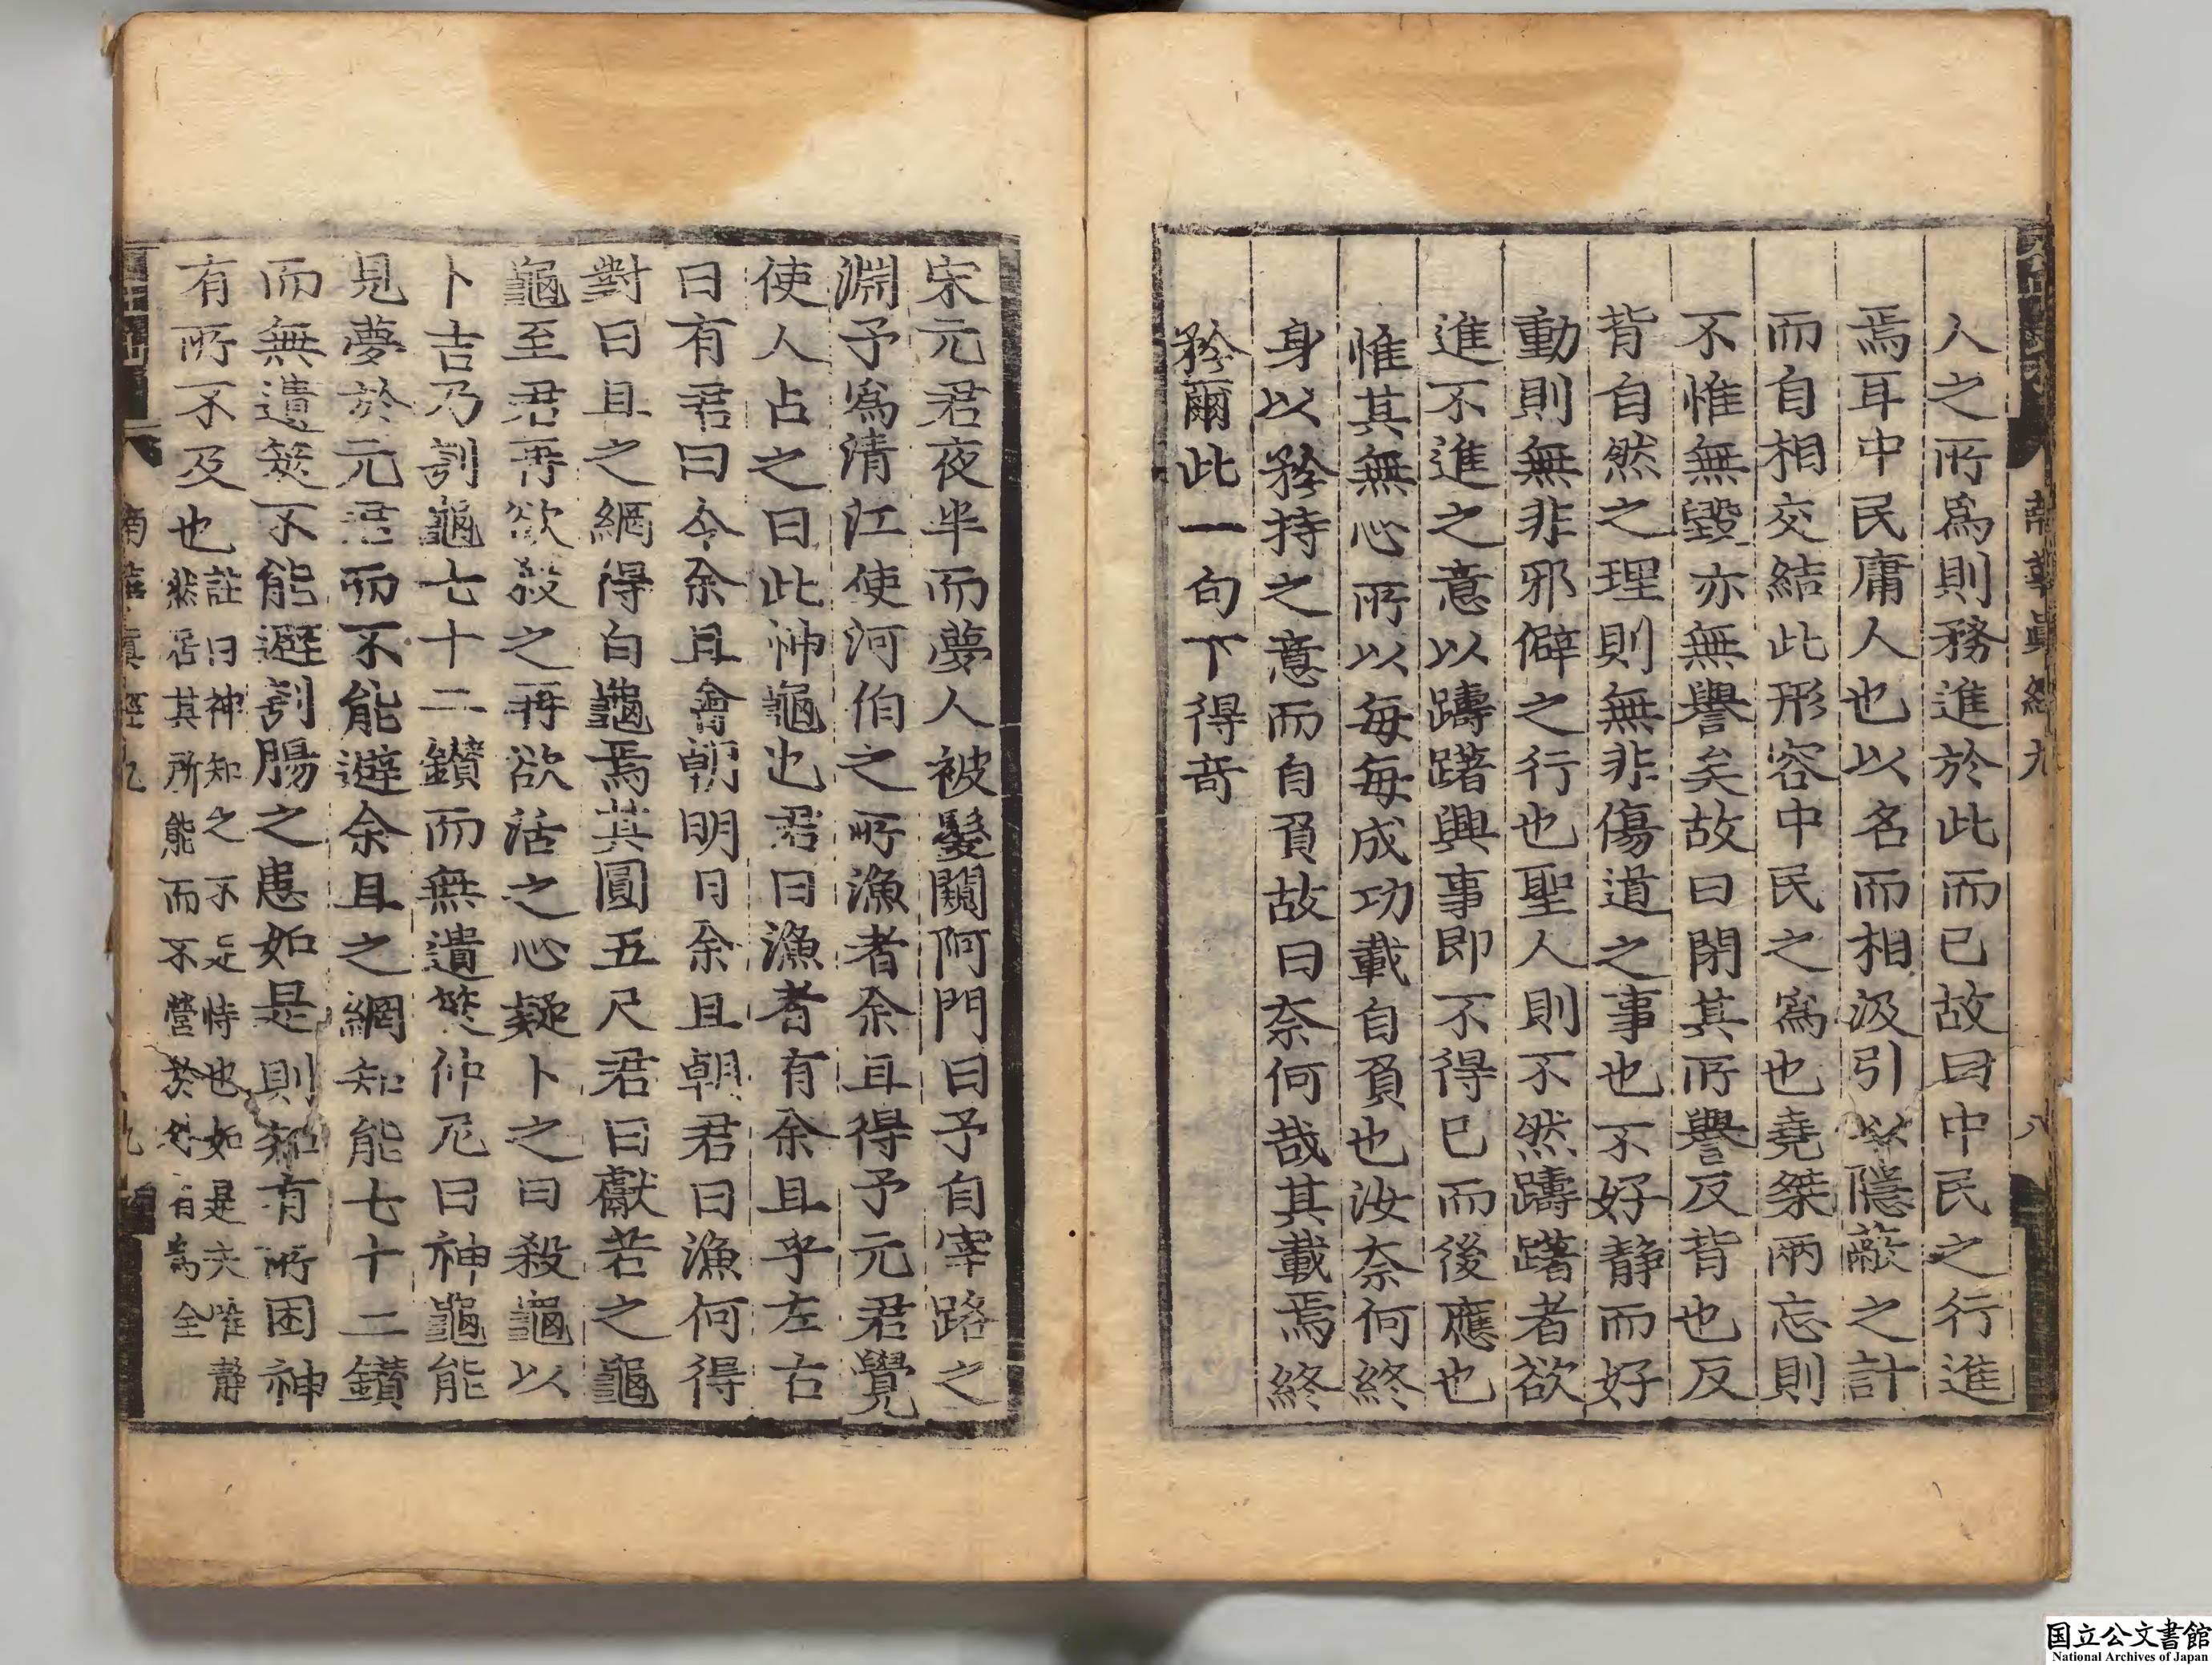 南華眞經九
八
人之所爲則務進於此而已故曰中民之行進
焉耳中民庸人也以名而相汲引以隱蔽之計
而自相交結此形容中民之爲也堯桀兩忘則
不惟無毀亦無譽矣故曰閉其所譽反背也反
背自然之理則無非傷道之事也不好靜而好
動則無非邪僻之行也聖人則不然躊躇者欲
進不進之意以躊躇興事即不得已而後應也
惟其無心所以每每成功載自負也汝奈何終
身以矜持之意而自負故曰奈何哉其載焉終
矜爾此一句下得奇
宋元君夜半而夢人被髮闚阿門曰予自宰路之
淵予爲清江使河伯之所漁者余且得予元君覺
使人占之曰此神龜也君曰漁者有余且乎左右
曰有君曰令余且會朝明日余且朝君曰漁何得
對曰且之網得白龜焉其圓五尺君曰獻若之龜
龜至君再欲殺之再欲活之心疑卜之曰殺龜以
卜吉乃刳龜七十二鑽而無遺筴仲尼曰神龜能
見夢於元君而不能避余且之網知能七十二鑽
而無遺筴不能避刳腸之患如是則知有所困神
有所不及也
註曰神知之不足恃也如是夫唯靜
然居其所能而不營於外者爲全
南華眞經九
九
国立公文書館
National Archives of Japan